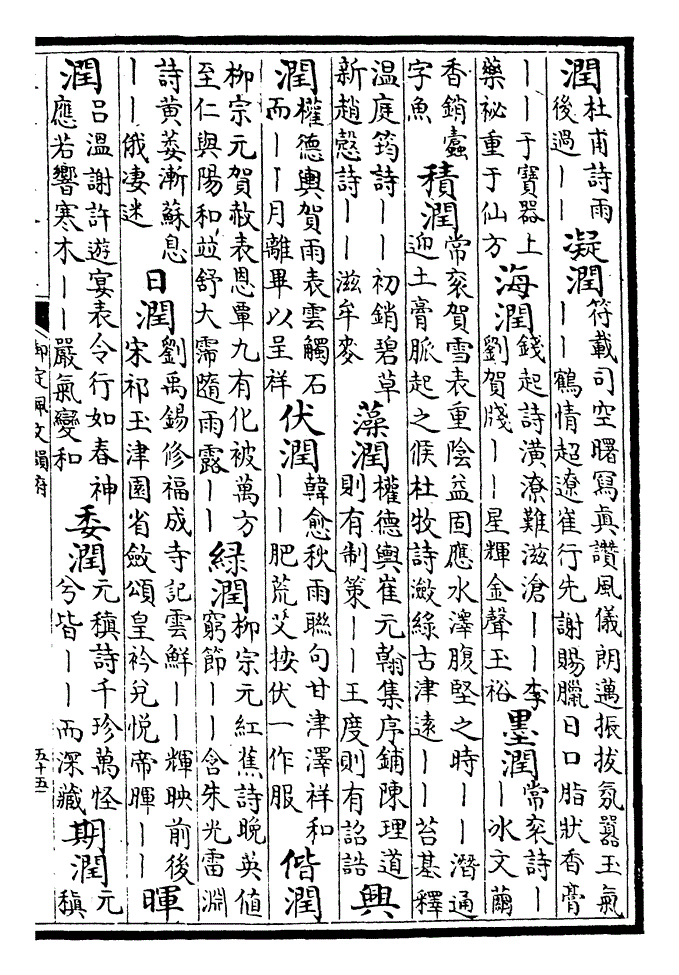 潤
杜甫詩雨
後過丨丨
凝潤
符載司空曙寫真讚風儀朗邁振拔氛囂玉氣
丨丨鶴情超遼崔行先謝賜臘日口脂狀香膏
丨丨于寶器上
藥祕重于仙方
海潤
錢起詩潢潦難滋滄丨丨李
劉賀牋丨丨星輝金聲玉裕
墨潤
常衮詩丨
丨冰文繭
香銷蠹
字魚
積潤
常衮賀雪表重陰益固應水澤腹堅之時丨丨潛通
迎土膏脈起之候杜牧詩瀲綠古津遠丨丨苔基釋
溫庭筠詩丨丨初銷碧草
新趙慤詩丨丨滋牟麥
藻潤
權德輿崔元翰集序鋪陳理道
則有制策丨丨王度則有詔誥
興
潤
權德輿賀雨表雲觸石
而丨丨月離畢以呈祥
伏潤
韓愈秋雨聯句甘津澤祥和
丨丨肥荒艾按伏一作服
偕潤
柳宗元賀赦表恩覃九有化被萬方
至仁與陽和竝舒大霈隨雨露丨丨
綠潤
柳宗元紅蕉詩晚英值
窮節丨丨含朱光雷淵
詩黃萎漸蘇息
丨丨俄凄迷
日潤
劉禹錫修福成寺記雲鮮丨丨輝映前後
宋祁玉津園省斂頌皇衿兌悅帝暉丨丨
暉
潤
呂溫謝許遊宴表令行如春神
應若響寒木丨丨嚴氣變和
委潤
元稹詩千珍萬怪
兮皆丨丨而深藏
期潤
元
稹
御定佩文韻府
五十五